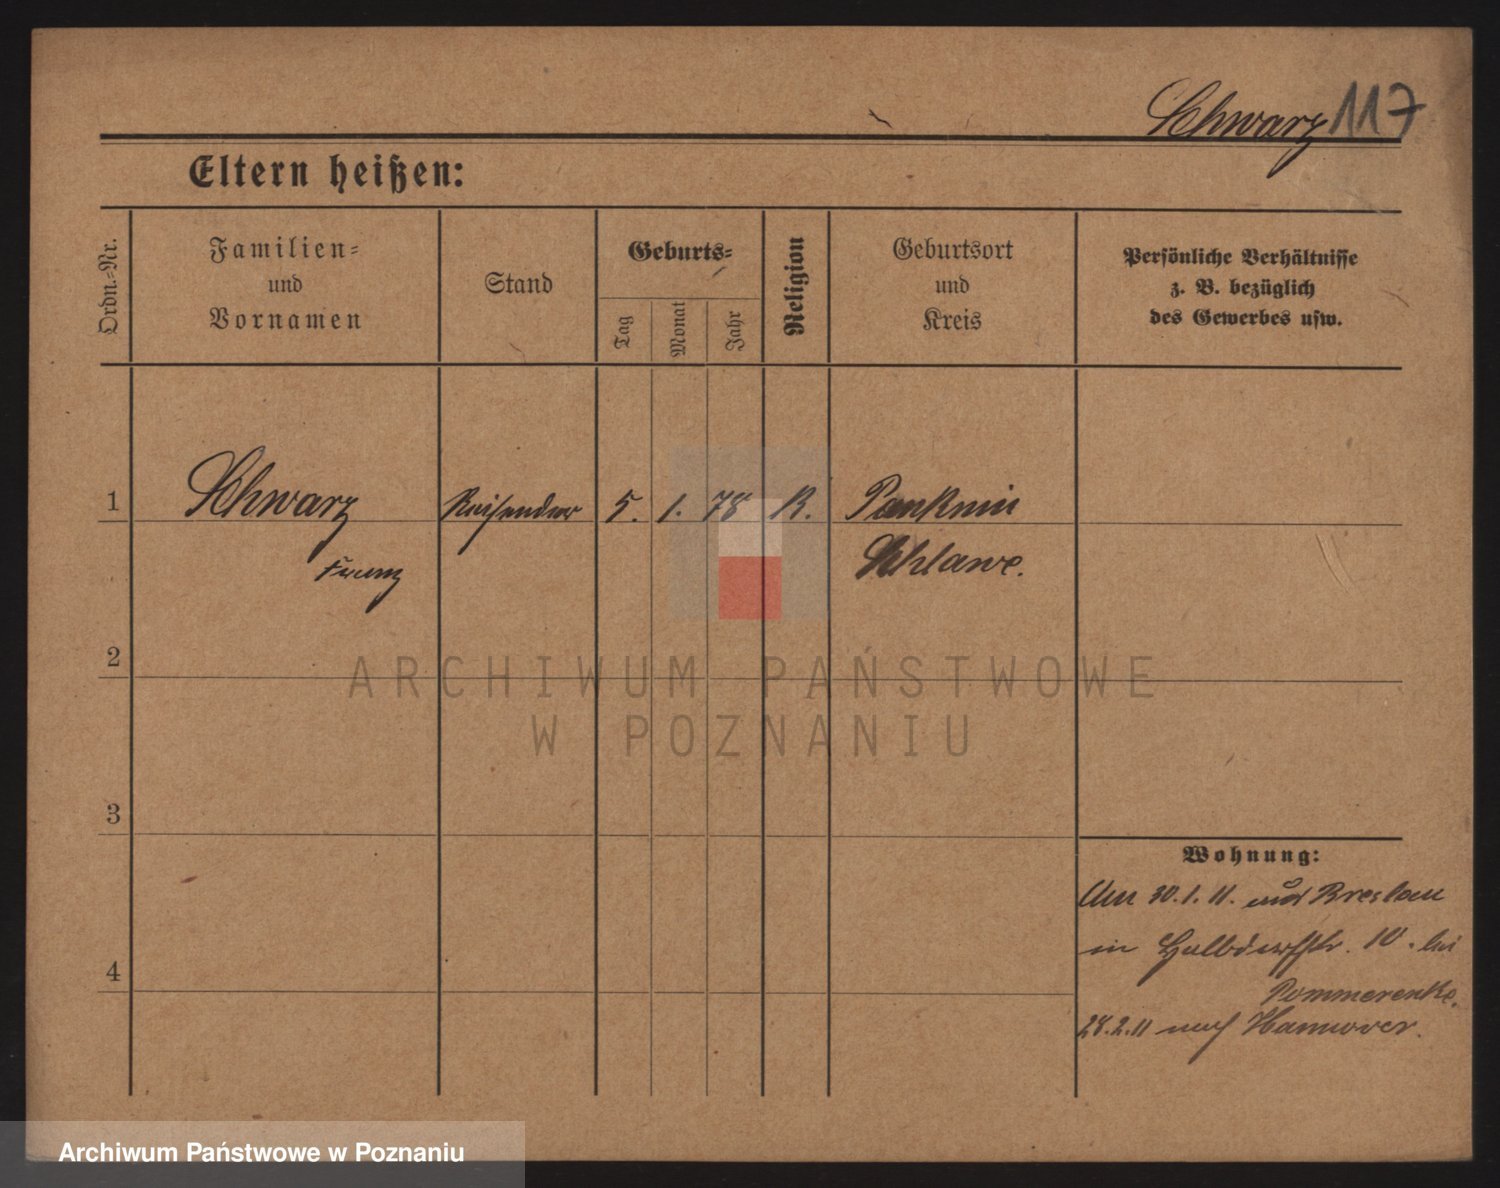 Schwarz 117
Eltern heißen:
Ordn.-Nr.
Familien-
und
Vornamen
Stand
Geburts-
Tag
Monat
Jahr
Religion
Geburtsort
und
Kreis
Persönliche Verhältnisse
z. B. bezüglich
des Gewerbes usw.
1 Schwarz Reisender 5. 1. 78 K. Panknin
Franz Schlawe.
2
ARCHIWUM PAŃSTWOWE
W POZNANIU
3
Wohnung:
Am 30.1.11. aus Breslau
in Halbdorfstr. 10. bei
4
Pommerenke.
28.2.11 nach Hannover.
Archiwum Państwowe w Poznaniu